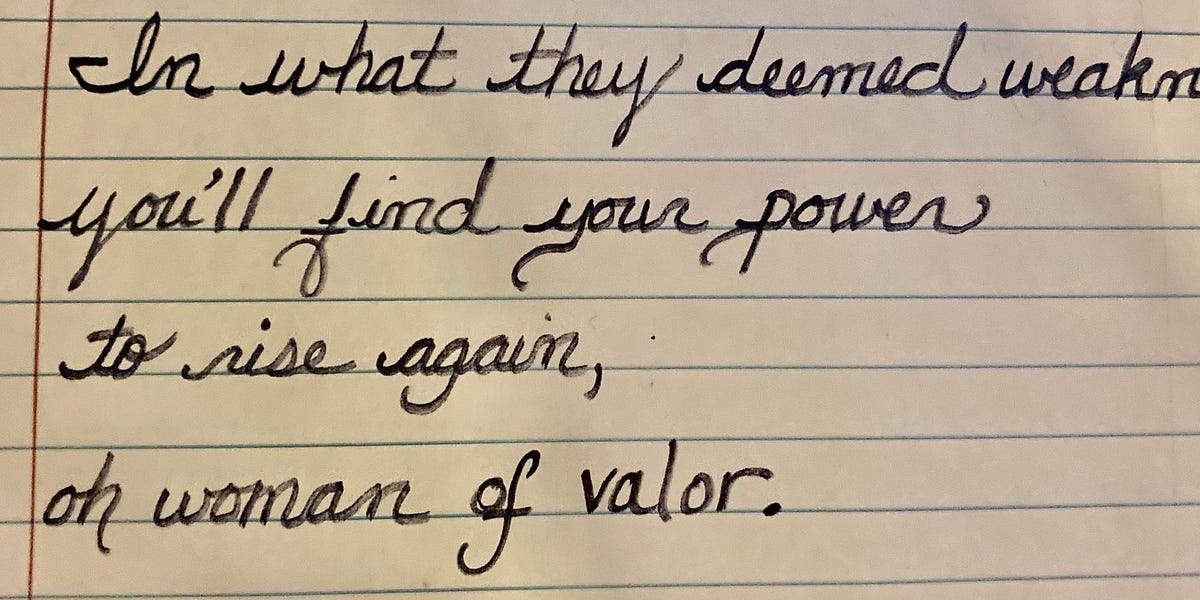 In what they deemed weakn
you'll find your power
to rise again,
oh woman of valor.